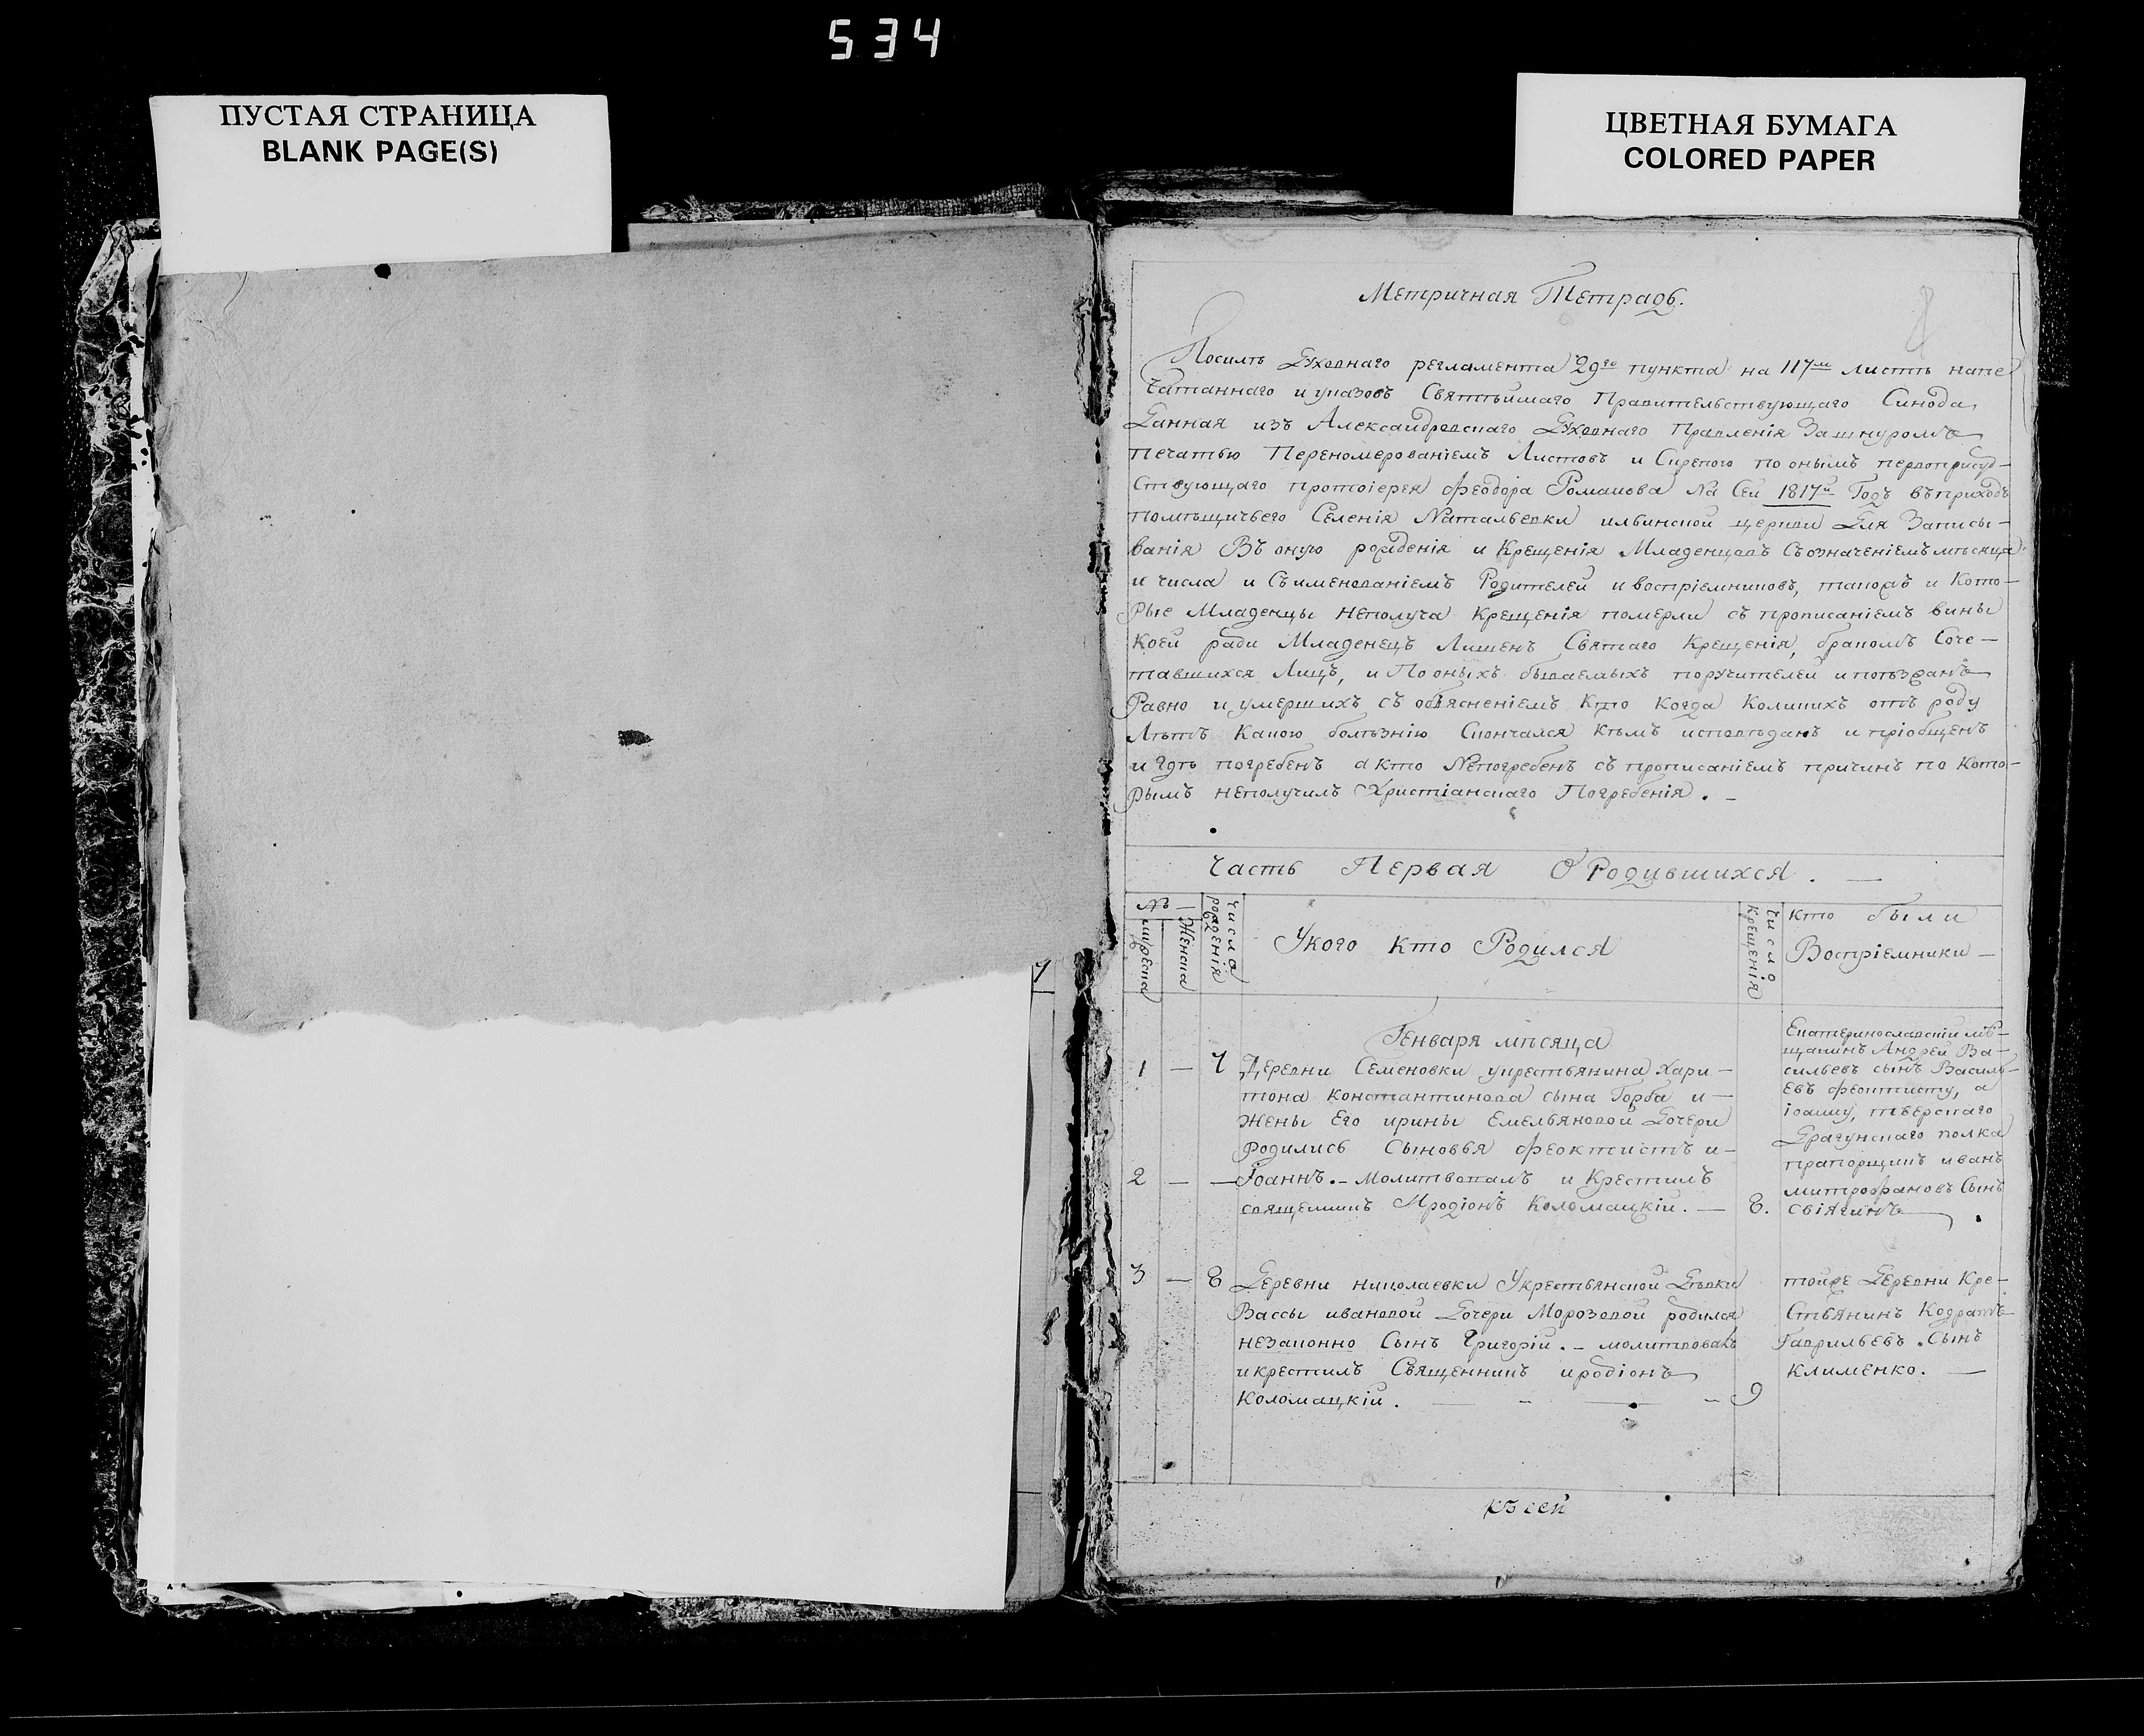 534
ПУСТАЯ СТРАНИЦА
BLANK PAGE(S)
ЦВЕТНАЯ БУМАГА
COLORED PAPER
Метричная Тетрадь.
Посилѣ Духовнаго регламента 29го пункта на 117м листѣ напе
Чатаннаго и указовъ Святѣйшаго Правительствующаго Синода,
Данная изъ Александровскаго Духовнаго Правленія Зашнуромъ
печатью Переномерованіемъ Листовъ и Скрепою по онымъ первоприсуд-
Ствующаго протоіерея Феодора Романова На Сей 1817й Годъ въ приходъ
помѣщичьего Селенія Натальевки ильинской церкви Для Записы-
ванія Въ оную рожденія и Крещенія Младенцовъ Съ означеніемъ мѣсяца
и числа и Съ именованіемъ Родителей и воспріемниковъ, такожъ и Кото-
рые Младенцы неполуча Крещенія померли съ прописаніемъ вины
коей ради Младенецъ Лишенъ Святаго Крещенія, бракомъ Соче-
тавшихся Лицъ, и По оныхъ бываемыхъ поручителей и поѣзжанъ
Равно и умершихъ съ объясненіемъ Кто Когда Коликихъ отъ роду
Лѣтъ Какою болѣзнію Скончался Кѣмъ исповѣданъ и пріобщенъ
и Гдѣ погребенъ а Кто Непогребенъ съ прописаніемъ причинъ по Кото-
рымъ неполучилъ Христіанскаго Погребенія. -
Часть Первая О Родившихся. —
№ —
мужеска
Женска
Число рожденія
Укого Кто Родился
Число Крещенія
Кто были Воспріемники —
Генваря мѣсяца
1 — 7 Деревни Семеновки укрестьянина Хари-
тона константинова сына Горба и-
Жены Его ирины Емельяновой Дочери
родились Сыновья Феоктистъ и-
2 — — Іоаннъ. - Молитвовалъ и Крестилъ
священникъ Иродіонъ Коломацкій. — 8.
Екатеринославскій мѣ-
щанинъ Андрей Ва-
сильевъ сынъ Василь-
евъ феоктисту, а
іоанну, тверскаго
Драгунскаго полка
прапорщикъ иванъ
митрофановъ Сынъ
3 — 8 Деревни николаевки Укрестьянской Дѣвки
Вассы ивановой Дочери Морозовой родился
незаконно Сынъ Григорій. - молитвовалъ
и крестилъ Священникъ иродіонъ
Коломацкій. — - — - 9
тойже Деревни Кре-
Стьянинъ Кодратъ
Гаврильевъ Сынъ
Клименко. —
къ сей